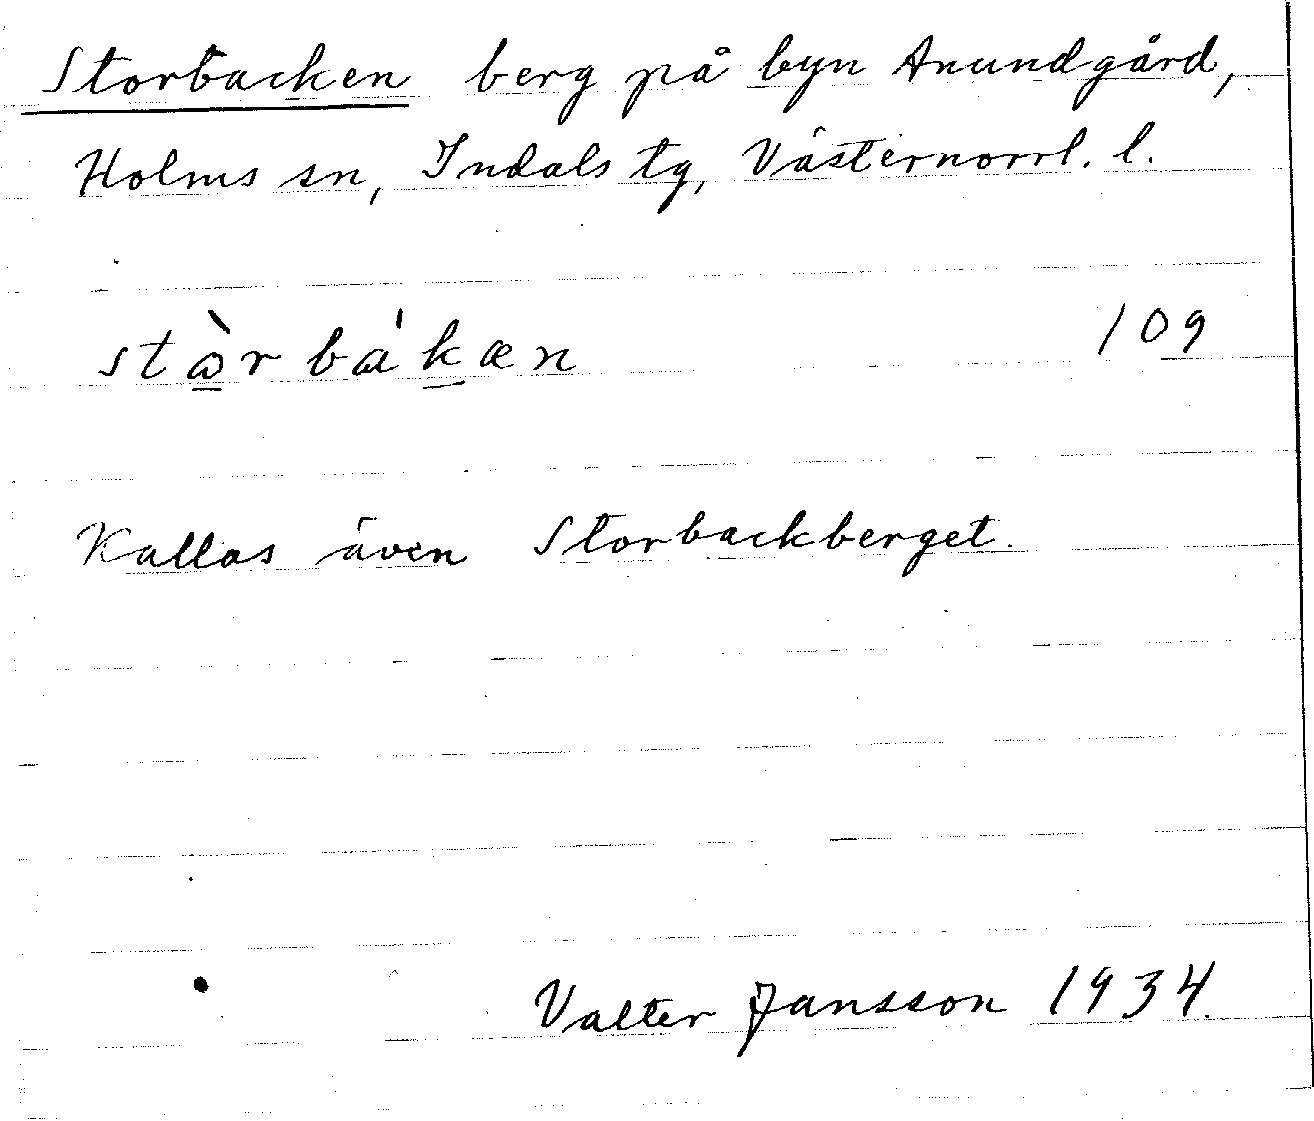 Storbacken berg på byn Anundgård,
Holms sn, Indals tg, Västernorrl. l.
stɷ̀rbákæn 109
Kallas även Storbackberget.
Valter Jansson 1934.